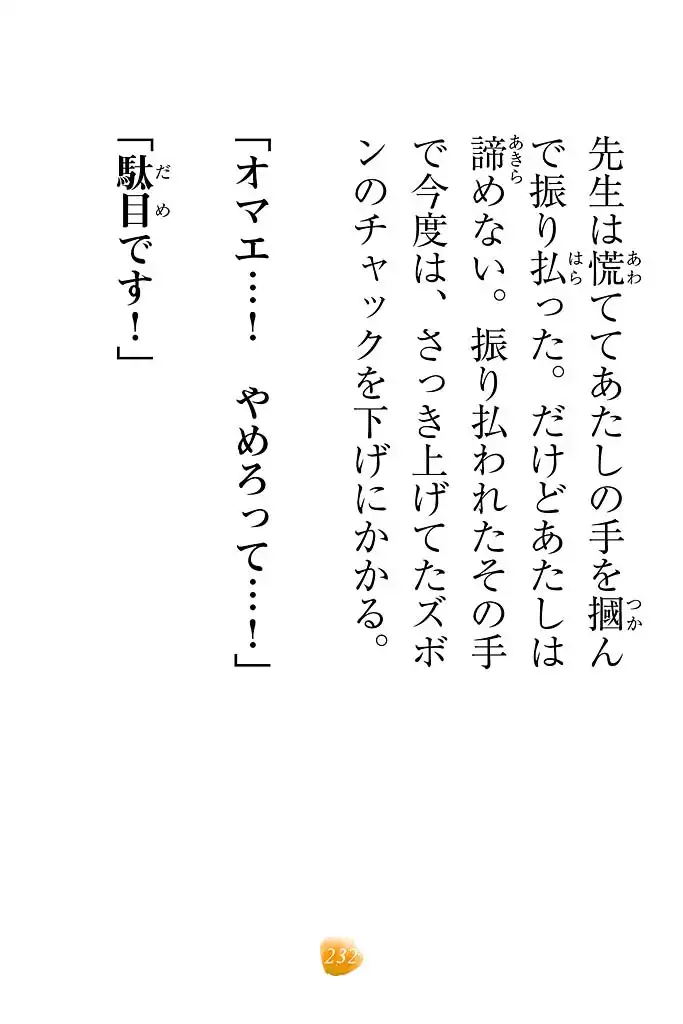 先生は慌ててあたしの手を摑ん
で振り払った。だけどあたしは
諦めない。振り払われたその手
で今度は、さっき上げてたズボ
ンのチャックを下げにかかる。
「オマエ…！　やめろって…！」
「駄目です！」
232